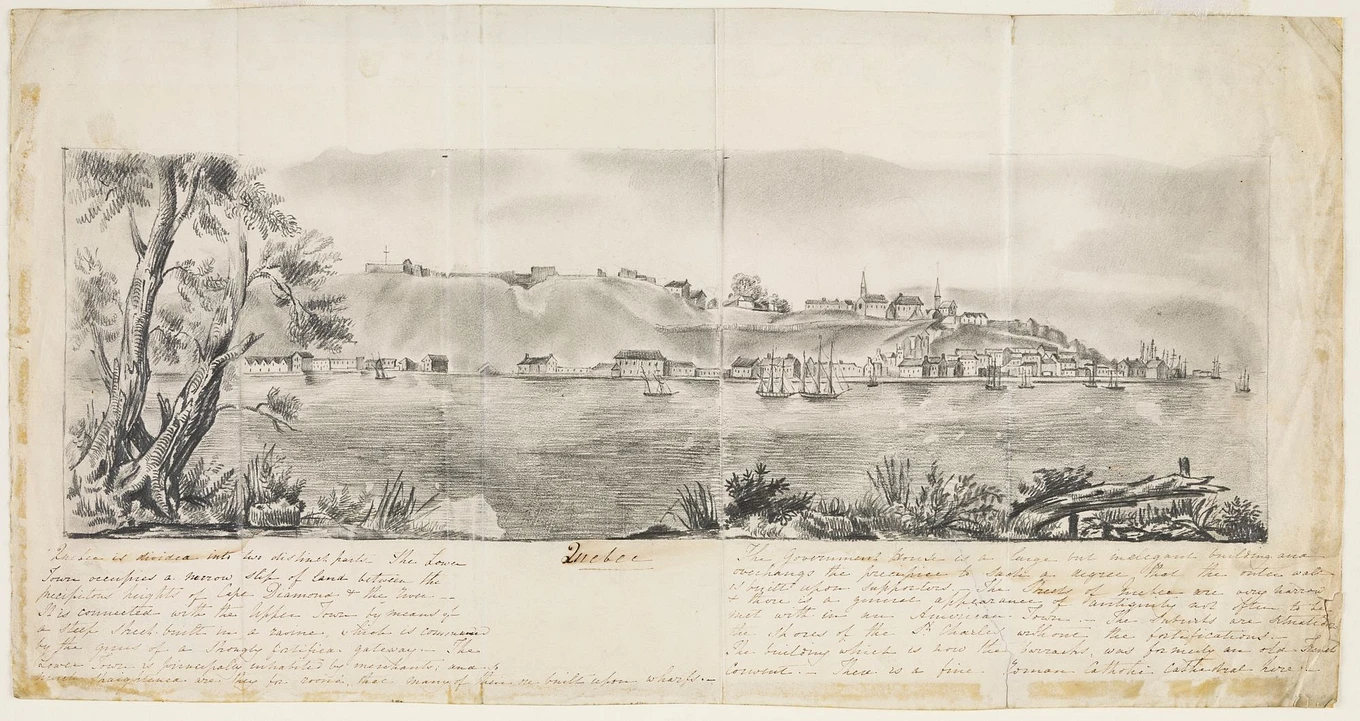 Quebec is divided into two distinct parts The Lower
Town occupies a narrow slip of land between the
precipitous heights of Cape Diamond & the river --
It is connected with the Upper Town by means of
a steep street built in a ravine, which is commanded
by the guns of a strongly fortified gateway - The
Lower Town is principally inhabited by merchants; and
are they for room, that many of built upon wharfs. -
Quebec
The Government House is a large but inelegant building and
overhangs the precipice to such a degree that the outer wall
is built upon supporters. The Streets of Quebec are very narrow
& there is a general appearance of antiquity not often to be
met with in an American Town. - The suburbs are situated
the shores of the St Charles without the fortifications. -
The building which is now the barracks, was formerly an old French
Convent. - There is a fine Roman Catholic Cathedral here. -